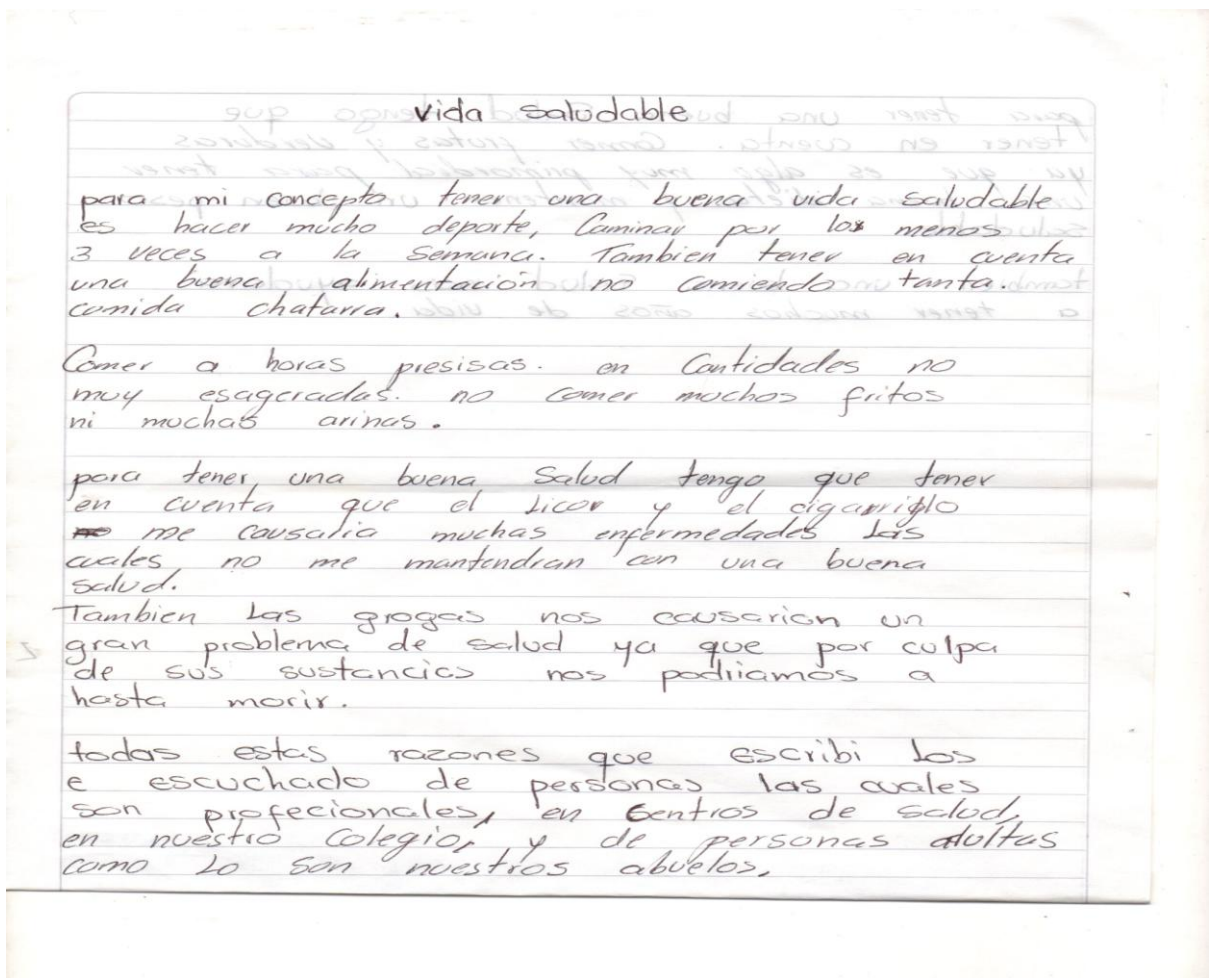 vida saludable
para mi concepto tener una buena vida saludable
es hacer mucho deporte, Caminar por los menos
3 veces a la Semana. Tambien tener en cuenta
una buena alimentación no comiendo tanta.
comida chatarra.
Comer a horas presisas. en Cantidades no
muy esageradas. no comer muchos fritos
ni muchas arinas.
para tener, una buena Salud tengo que tener
en cuenta que el Licor y el cigarrillo
me causalia muchas enfermedades Las
cuales, no me mantendran con una buena
salud.
Tambien Las grogas nos causarian un
gran problema de salud ya que por culpa
de sus sustancias nos podriiamos a
hasta morir.
todas estas razones que escribi Los
e escuchado de personas las cuales
son profecionales, en Centros de salud,
en nuestro Colegio, y de personas adultas
como Lo son nuestros abuelos.